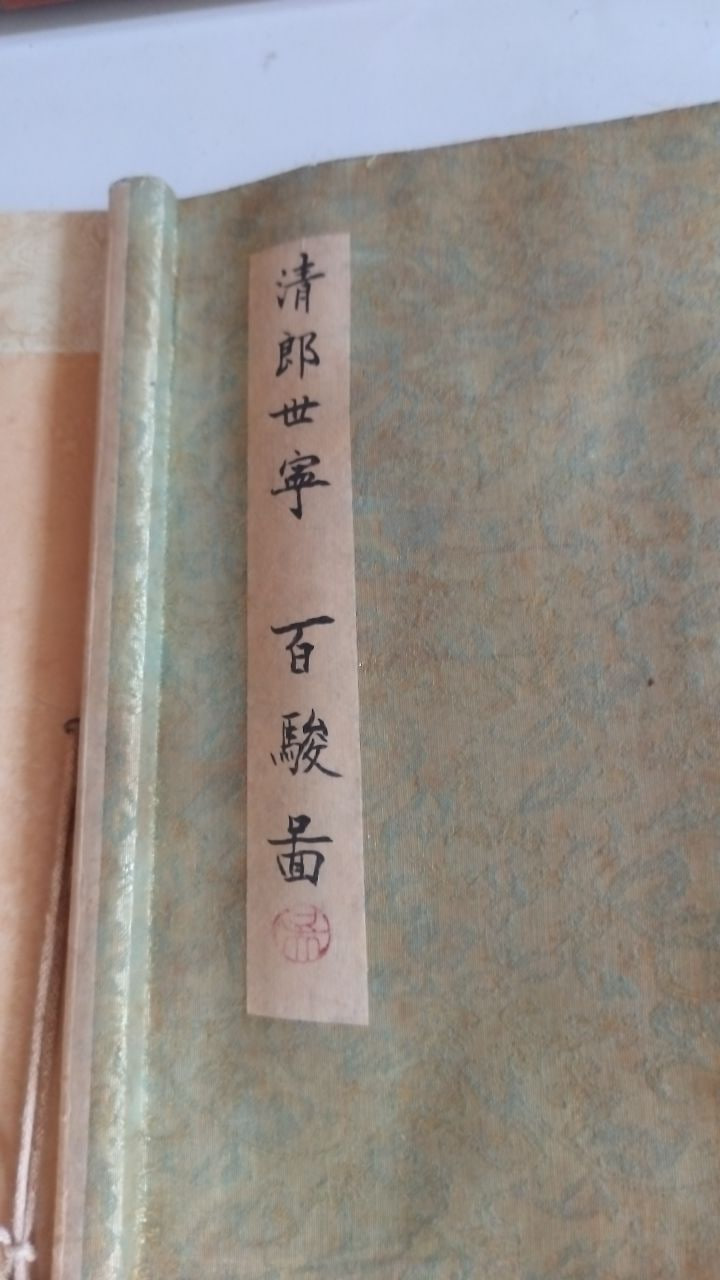 清郎世寧 百駿啚